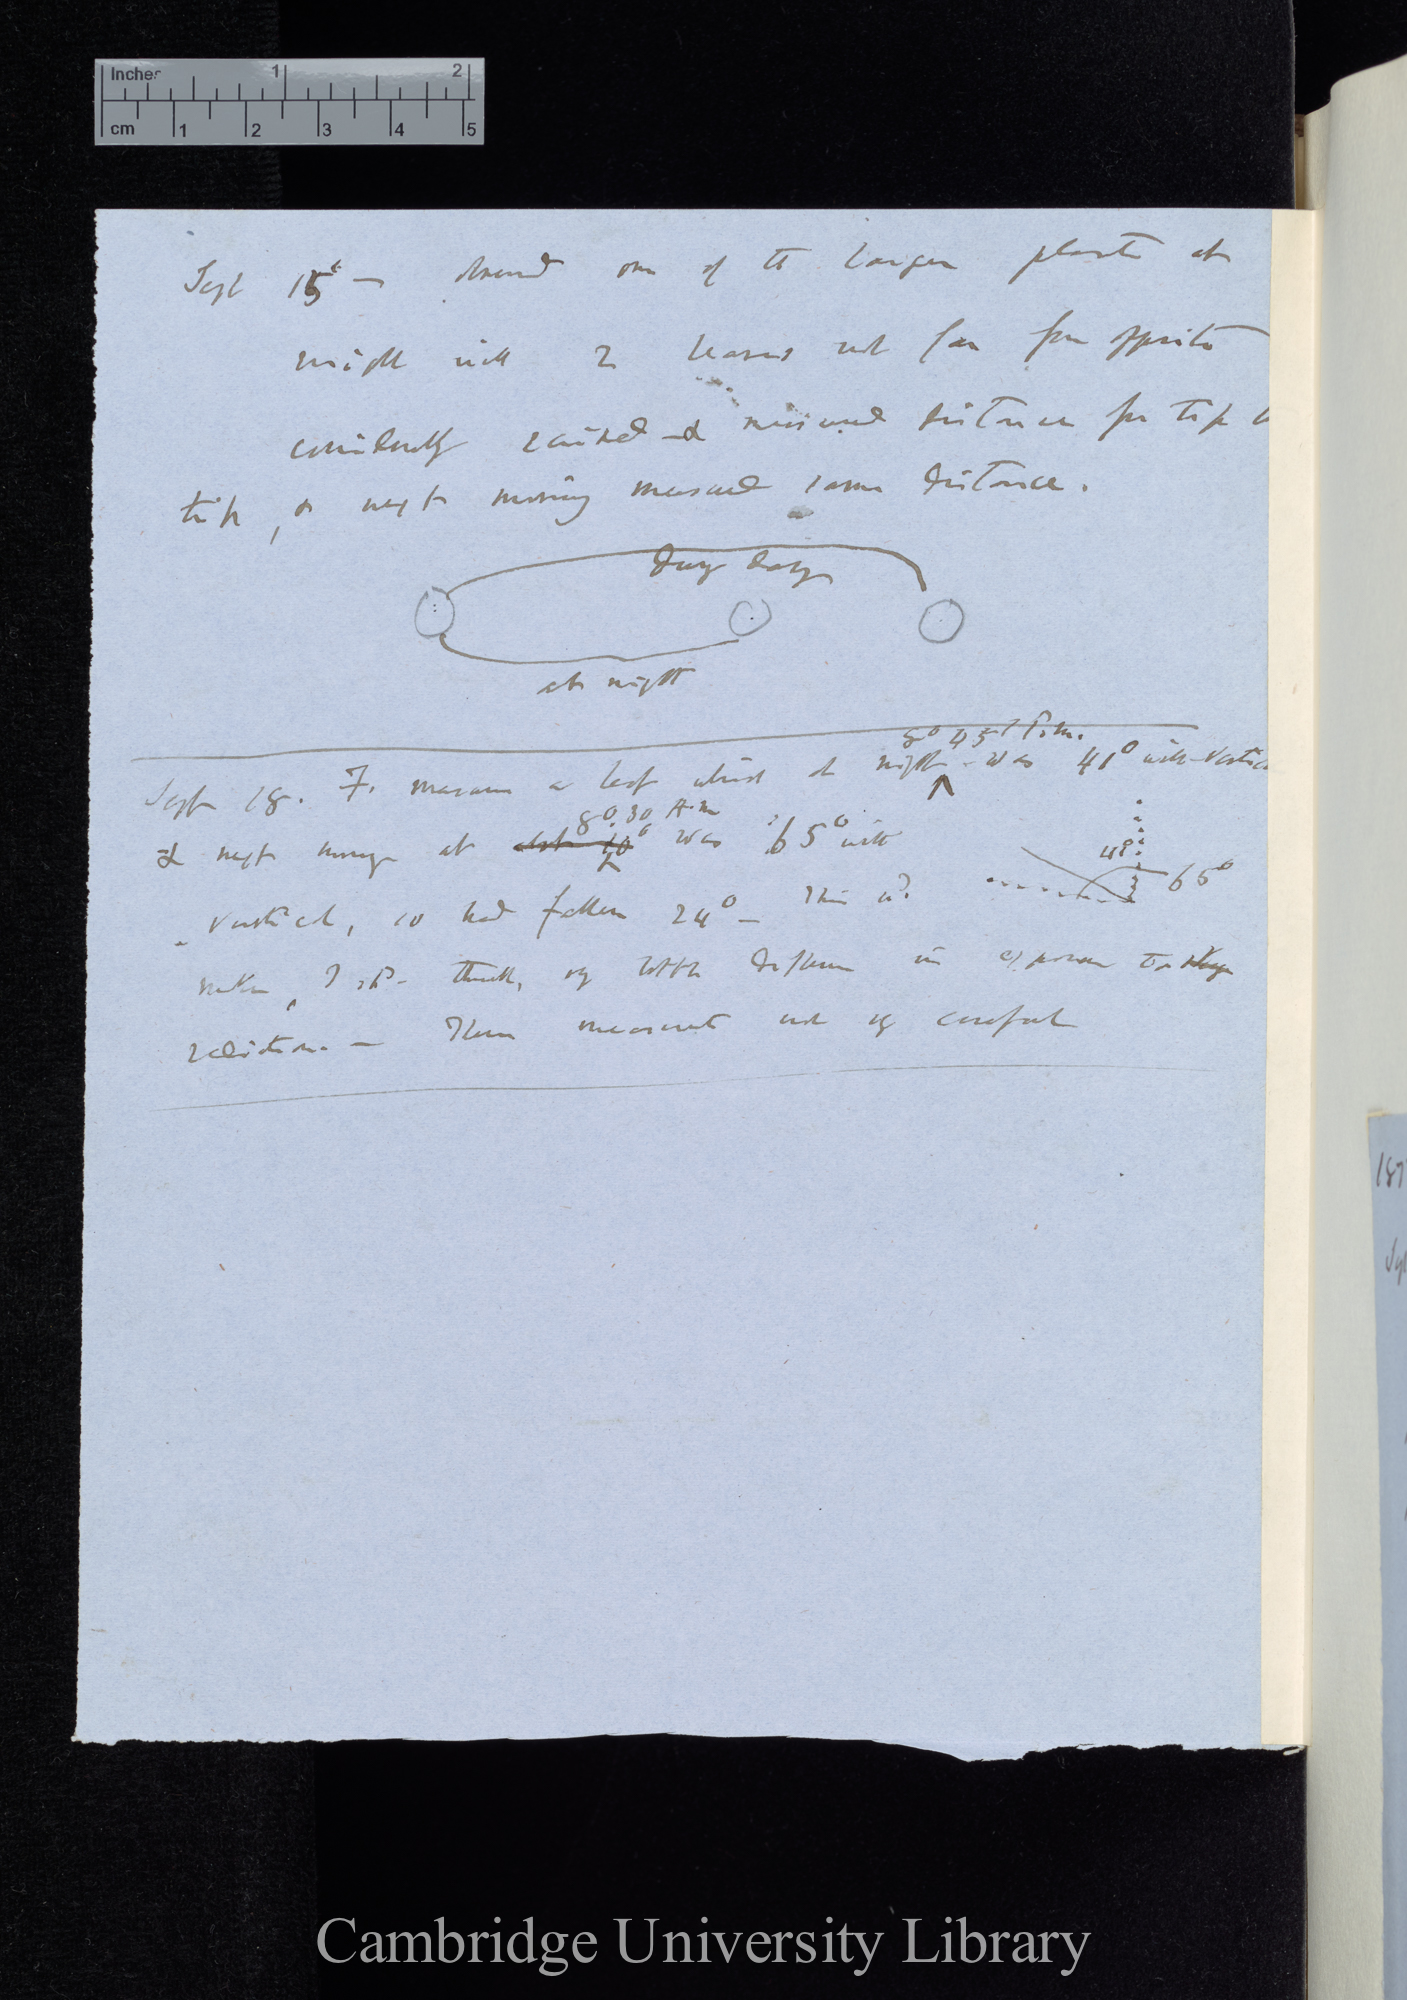 Inches 1 2
cm 1 2 3 4 5
Sept 15th — observed one of the larger plants at
night with 2 leaves not far from opposite
considerably raised & measured distance from tip to
tip, & next morning measured same distance.
during day
at night
8° 45' P.m.
Sept 18. F. measured a leaf which at night was 41° with vertical
8°.30 A.m
& next morning at was 65° with
41°
65°
vertical, so had fallen 24° — This is?
rather, I think, by little difference in
radiation. — These measurements not very careful
187
Sept
Cambridge University Library